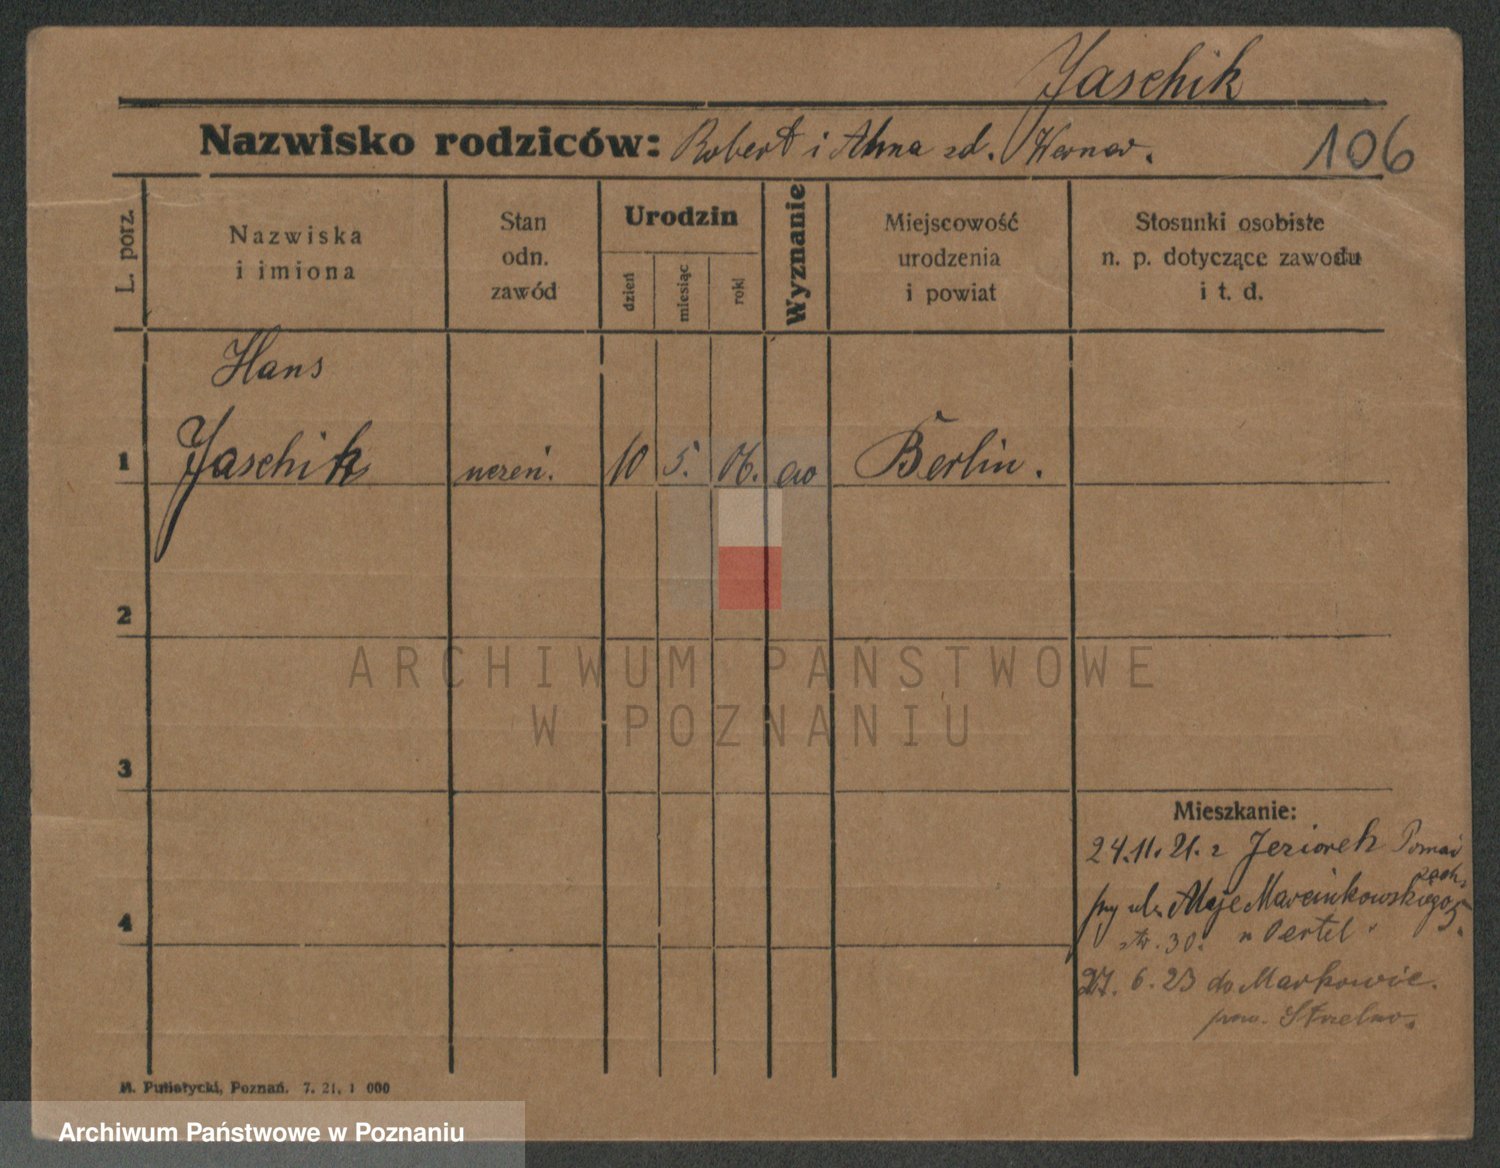 Jaschik
Nazwisko rodziców: Robert i Alma zd. Werner.
106
L. porz.
Nazwiska
i imiona
Stan
odn.
zawód
Urodzin
dzień
miesiąc
rok
Wyznanie
Miejscowość
urodzenia
i powiat
Stosunki osobiste
n. p. dotyczące zawodu
i t. d.
Hans
1 Jaschik uczeń. 10 5. 06. ew Berlin.
2
ARCHIWUM PAŃSTWOWE
W POZNANIU
3
Mieszkanie:
24.11. 21. z Jeziorek
przy ul. Aleje Marcinkowskiego 5.
30. u Oertel
4
27. 6. 23 do Markowic.
pow. Strzelno.
M. Putiatycki, Poznań. 7. 21, 1 000
Archiwum Państwowe w Poznaniu